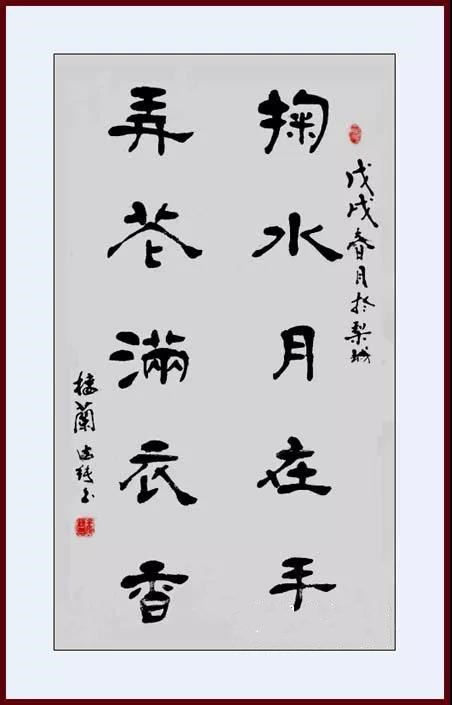 戊戌春月於梨城
掬水月在手
弄花滿衣香
楼蘭